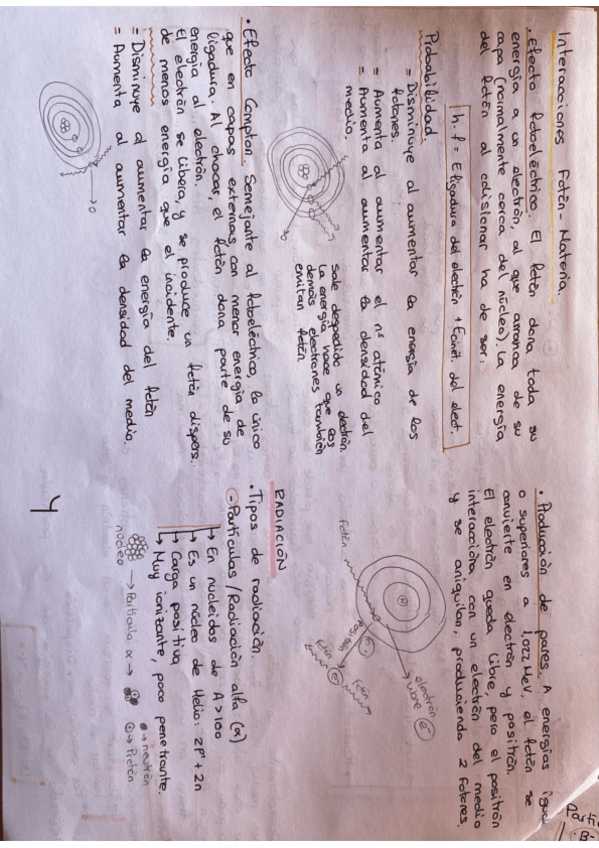 Interacciones Fotón-Materia.
• Efecto fotoeléctrico. El fotón dona toda su
energía a un electrón, al que arranca de su
capa (normalmente cerca del núcleo). La energía
del fotón al colisionar ha de ser:
h.f = E ligadura del electrón + Ecinét. del elect.
Probabilidad
= Disminuye al aumentar la energía de los
fotones.
= Aumenta al aumentar el nº atómico
= Aumenta al aumentar la densidad del
medio.
Sale despedido un electrón.
La energía hace que los
demás electrones también
emitan fotón.
• Efecto Compton. Semejante al fotoeléctrico, lo único
que en capas externas, con menor energía de
ligadura. Al chocar, el fotón dona parte de su
energía al electrón.
El electrón se libera, y se produce un fotón dispers.
de menos energía que el incidente.
= Disminuye al aumentar la energía del fotón
= Aumenta al aumentar la densidad del medio.
• Producción de pares. A energías igua
o superiores a 1,022 MeV, el fotón se
convierte en electrón y positrón.
El electrón queda libre, pero el positrón
interacciona con un electrón del medio
y se aniquilan, produciendo 2 fotones.
Fotón
electrón
libre e-
Positrón
Fotón
Fotón
RADIACIÓN
• Tipos de radiación.
- Partículas/Radiación alfa (α)
→ En nucleidos de A>100
→ Es un núcleo de Helio: 2p+ + 2n
→ Carga positiva
→ Muy ionizante, poco penetrante.
núcleo → Partícula α →
● → neutrón
⊕ → Protón
4
Parti
B-